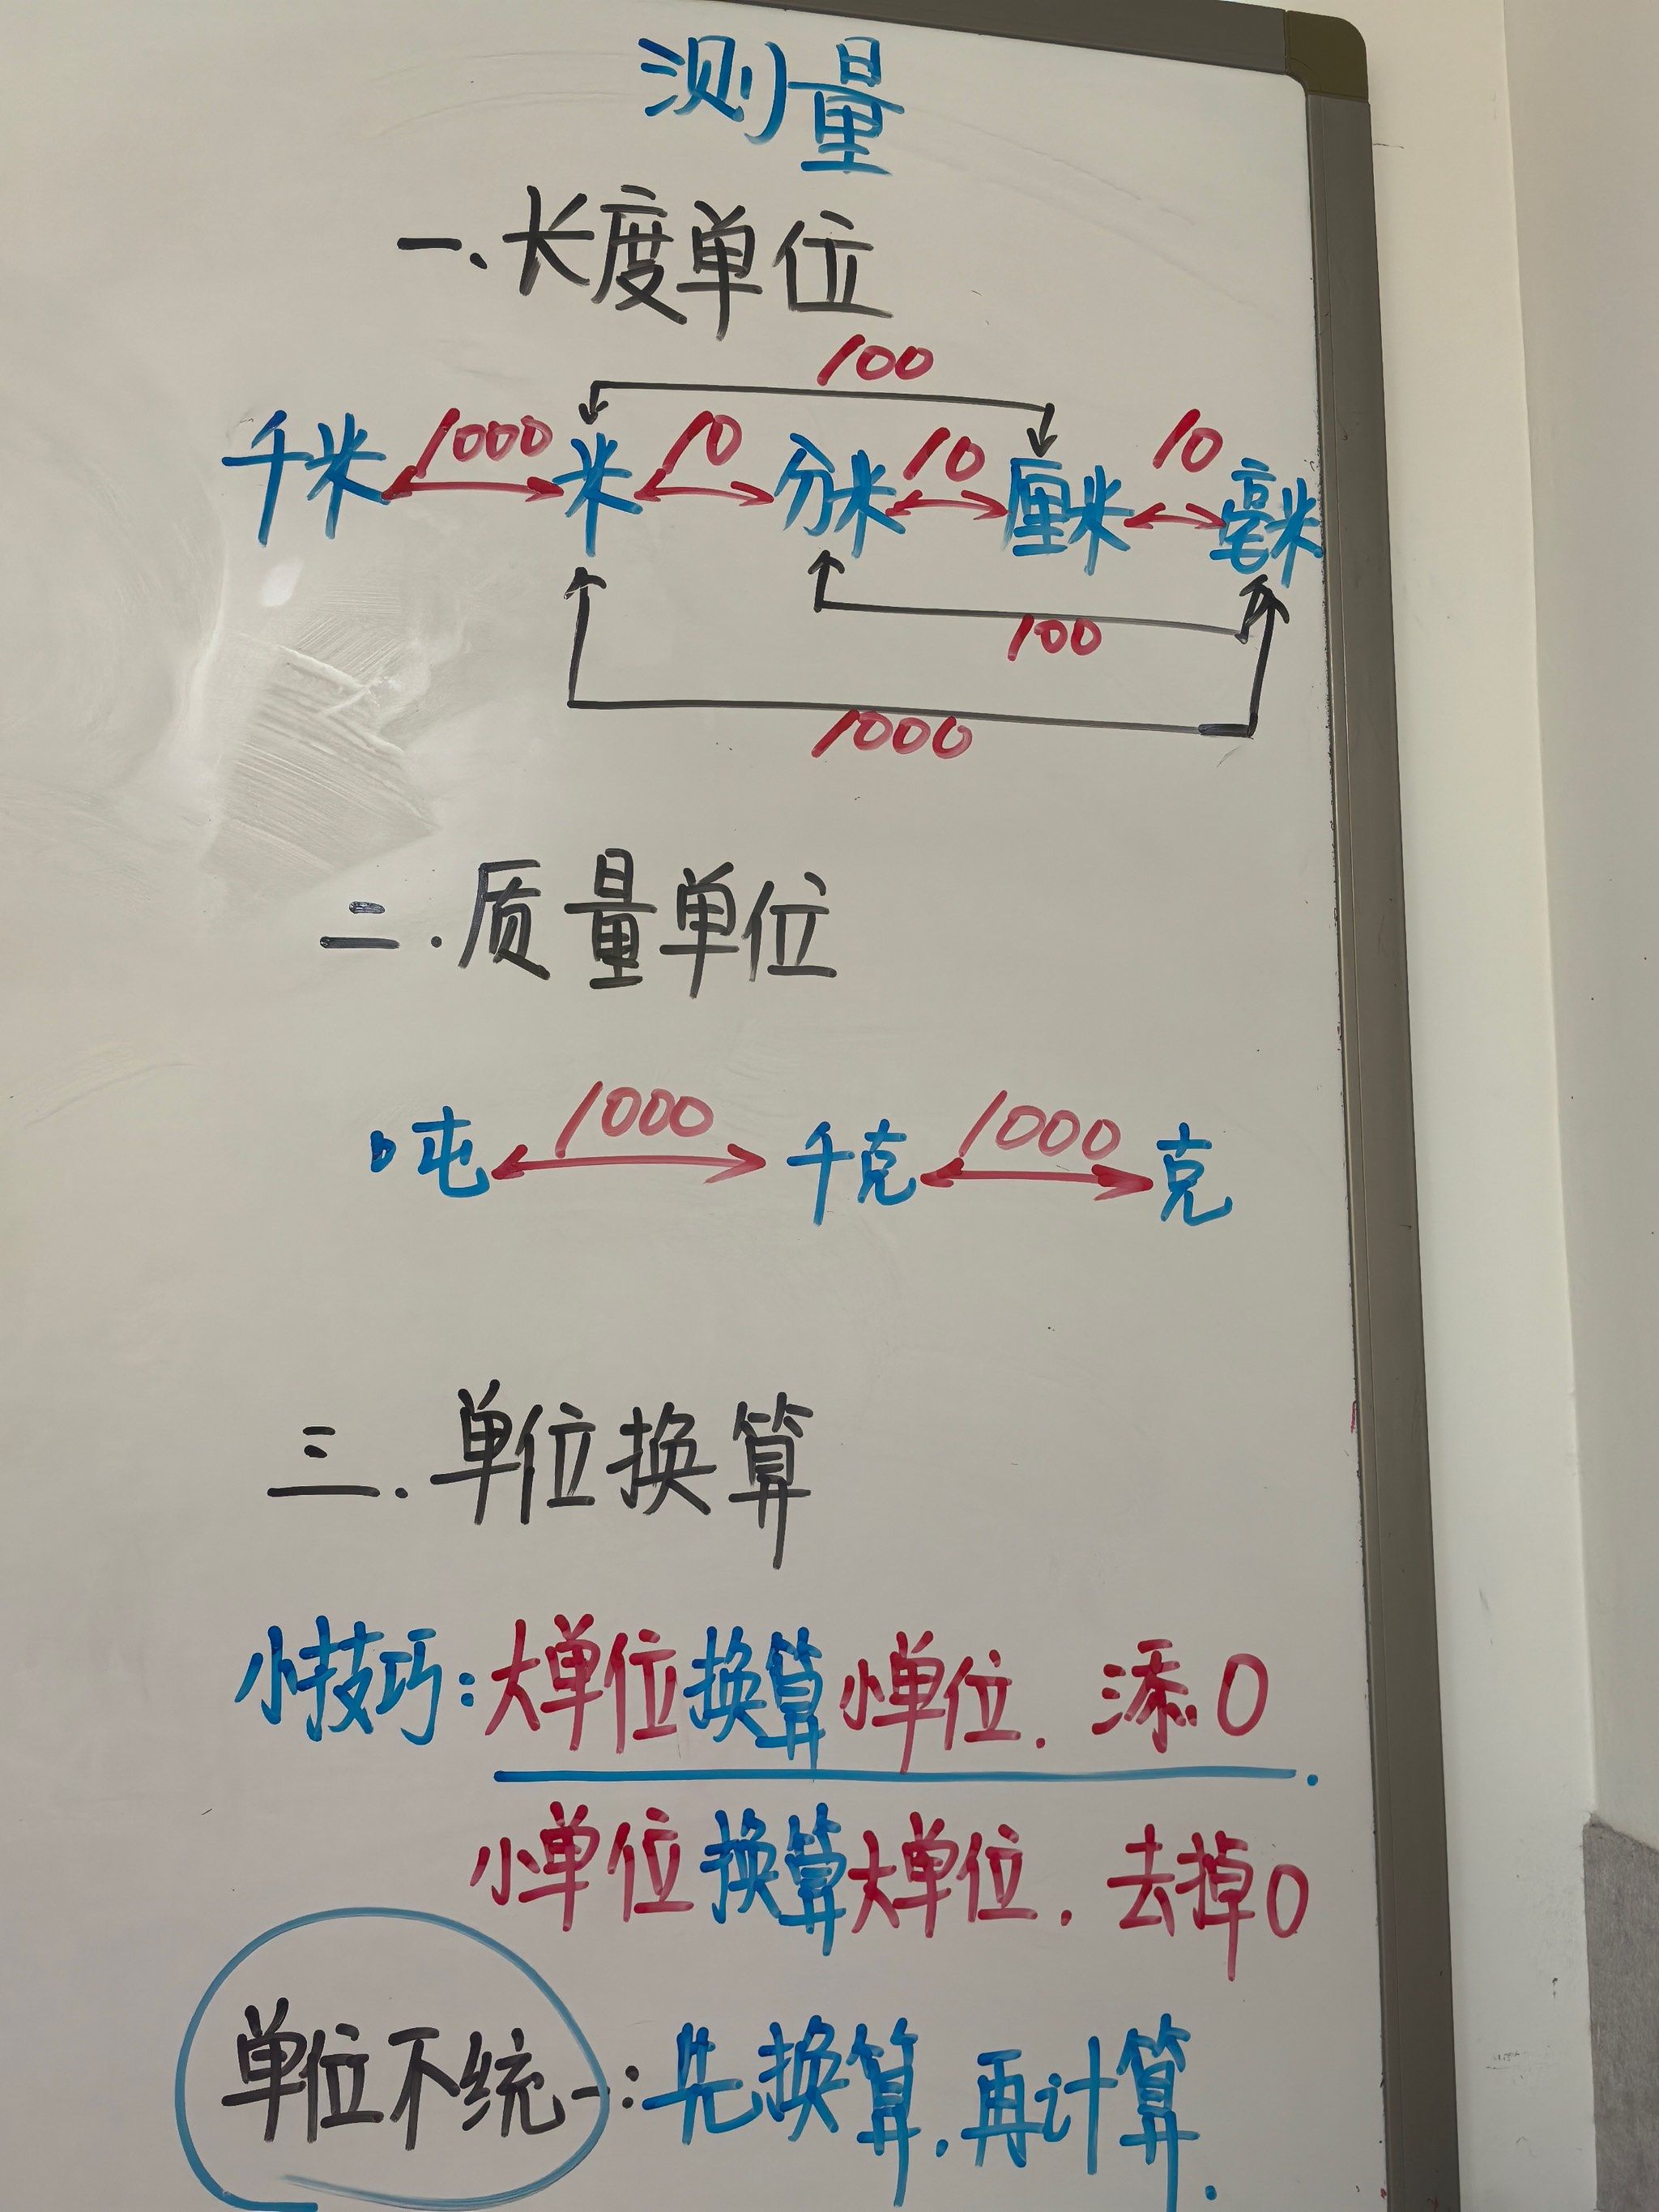 测量
一.长度单位
100
千米 1000 米 10 分米 10 厘米 10 毫米
100
1000
二.质量单位
吨 1000 千克 1000 克
三.单位换算
小技巧:大单位换算小单位.添0.
小单位换算大单位.去掉0
单位不统一:先换算.再计算.